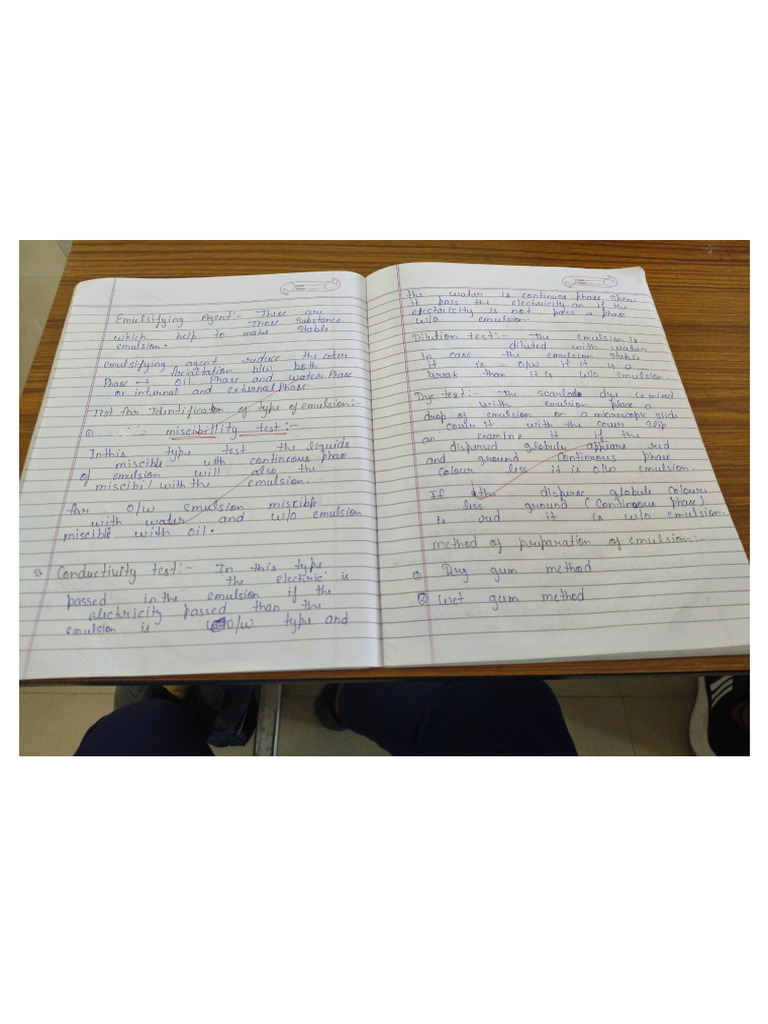 Emulsifying Agent:- These are
Those Substance
which help to make Stable
emulsion.
emulsifying agent reduce the enter
facialtation b/w both
Phase → oil Phase and water Phase
or internal and external Phase.
Test for Identification of type of emulsion:-
① miscibellity test:-
In this type test the liquids
miscible with contineous phase
of emulsion will also the
miscibil with the emulsion.
for o/w emulsion miscible
with water and w/o emulsion
miscible with oil.
2. Conductivity test:- In this type
the electric is
passed in the emulsion if the
electricity passed than the
emulsion is o/w type and
the water is continues phase show
it pass the electricity an if the
electrecity is not pass a phase
w/o emulsion.
Dilution test:- The emulsion is
diluted with water
In case the emulsion stable
it is o/w if it is a
break than it is w/o emulsion.
Dye test:- The scarlate dye is mixed
with emulsion place a
drop of emulsion on a microscopic slide
cover it with the cover slip
an examine it if the
dispersed globule appeare red
and ground Continuous phase
colour less it is o/w emulsion.
If the disperse globule colours
less ground (Continuous phase)
is red it is w/o emulsion.
method of preparation of emulsion:-
① Dry gum method
② Wet gum method